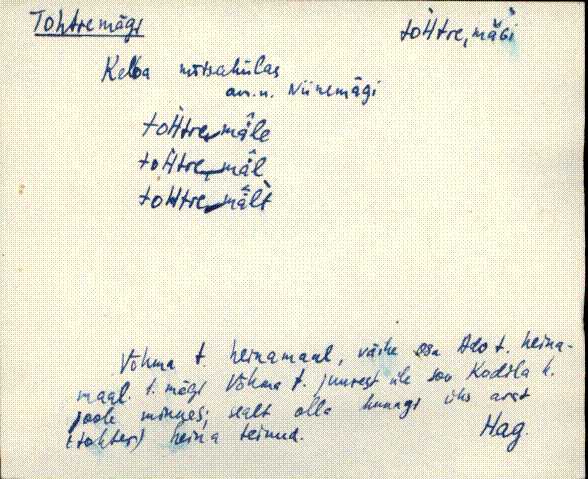 Tohtremägi
tòHtre,mäGi
Kelba mõisakülas
an.n. Niinemägi
tòHtre,mäle
tòHtre,mäl
tòHtre,mält
Võhma t. heinamaal, väike osa Ado t. heina-
maal. t. mägi Võhma t. juurest üle soo Kodila k.
poole minnes; sealt olla kunagi üks arst
(tohter) heina teinud.
Hag.